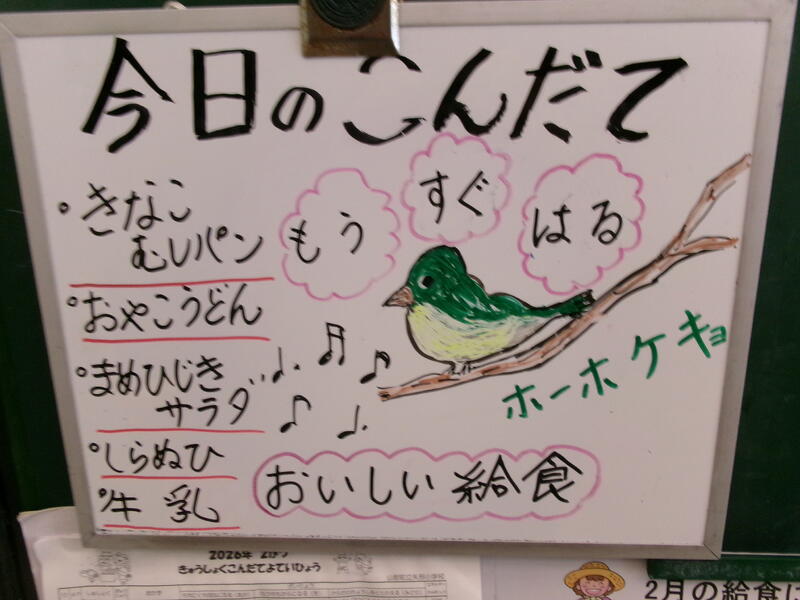 今日のこんだて
・きなこ
むしパン
・おやこうどん
・まめひじき
サラダ
・しらぬひ
・牛乳
もう
すぐ
はる
ホーホケキョ
おいしい給食
2026年 2がつ
きゅうしょくこんだてよていひょう
2月の給食に